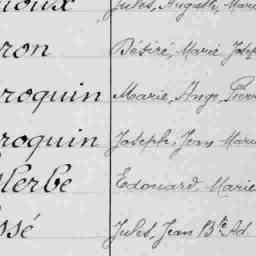 Jules, Auguste, Marie
ron Désiré, Marie Joseph
roquin Marie, Ange, Pierre
roquin Joseph, Jean Marie
lerbe Edouard, Marie
ssé Jules, Jean Bte Ad